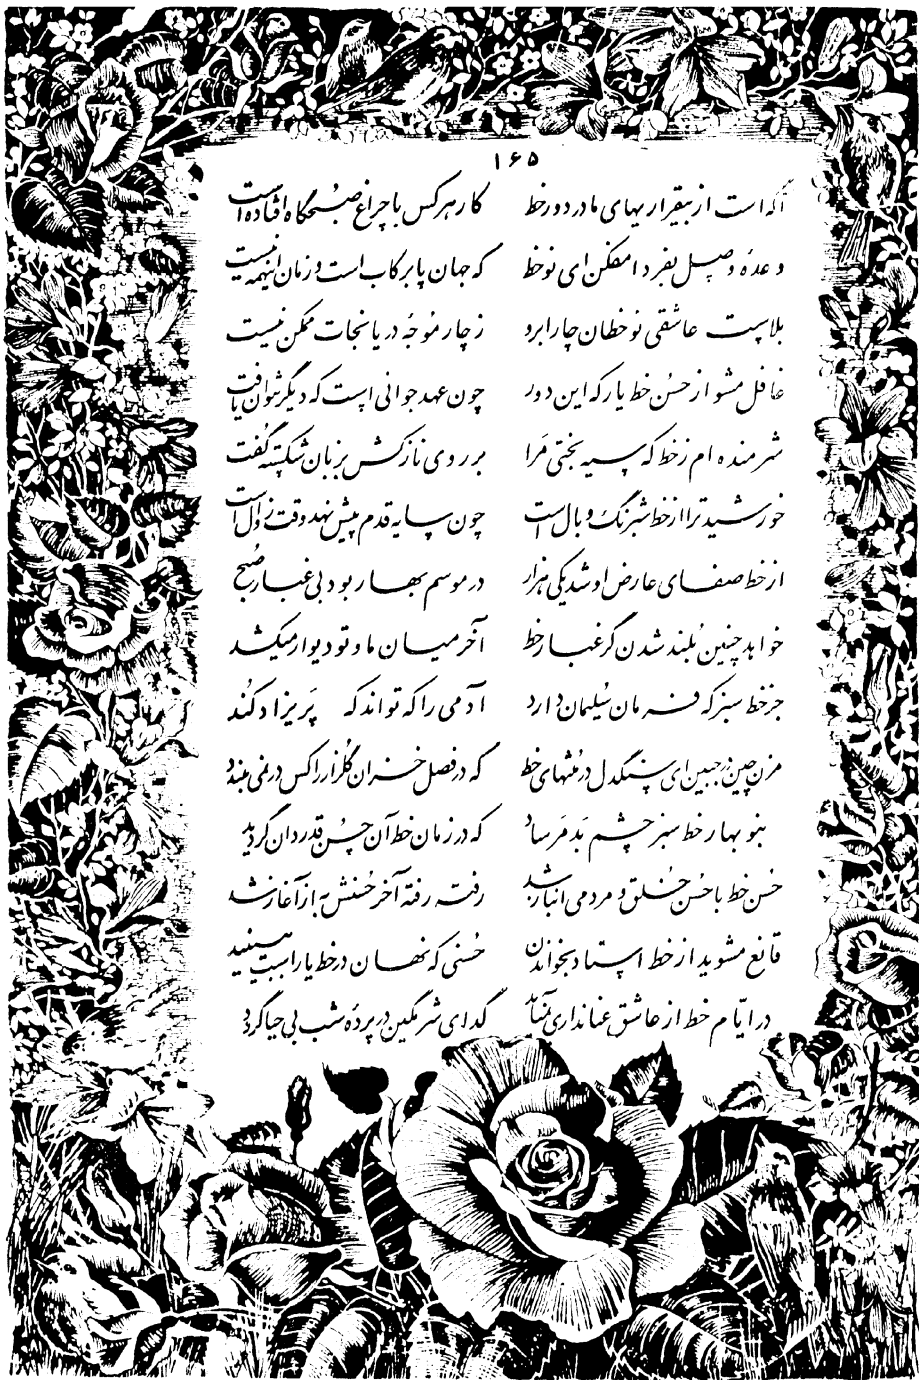 ۱۶۵
آگه است از بیقراریهای ما در دور خط کار هر کس با چراغ صبحگاه افتاده است
وعده وصل بفردا مفکن ای نوخط که جهان پا برکاب است و زمان اینهمه نیست
بلاست عاشقی نوخطان چار ابرو ز چار موجه دریا نجات ممکن نیست
غافل مشو از حسن خط یار که این دور چون عهد جوانی است که دیگر نتوان یافت
شرمنده ام ز خط که سیه بختی مرا بر روی نازکش بزبان شکسته گفت
خورشید ترا از خط شبرنگ وبال است چون سایه قدم پیش نهد وقت زوال است
از خط صفای عارض او شد یکی هزار در موسم بهار بود بی غبار صبح
خواهد چنین بلند شدن گر غبار خط آخر میان ما و تو دیوار میکشد
جز خط سبز که فرمان سلیمان دارد آدمی را که تواند که پریزاد کند
مزن چین در جبین ای سنگدل در منتهای خط که در فصل خزان گلزار را کس در نمی بندد
بنوبهار خط سبز چشم بد مرساد که در زمان خط آن حسن قدردان گردید
حسن خط با حسن خلق و مردمی انباز شد رفته رفته آخر حسنش به از آغاز شد
قانع مشوید از خط استاد بخواندن حسنی که نهان در خط یار است ببینید
در ایام خط از عاشق عنانداری نمیآید گدای شرمگین در پرده شب بی حیا گردد